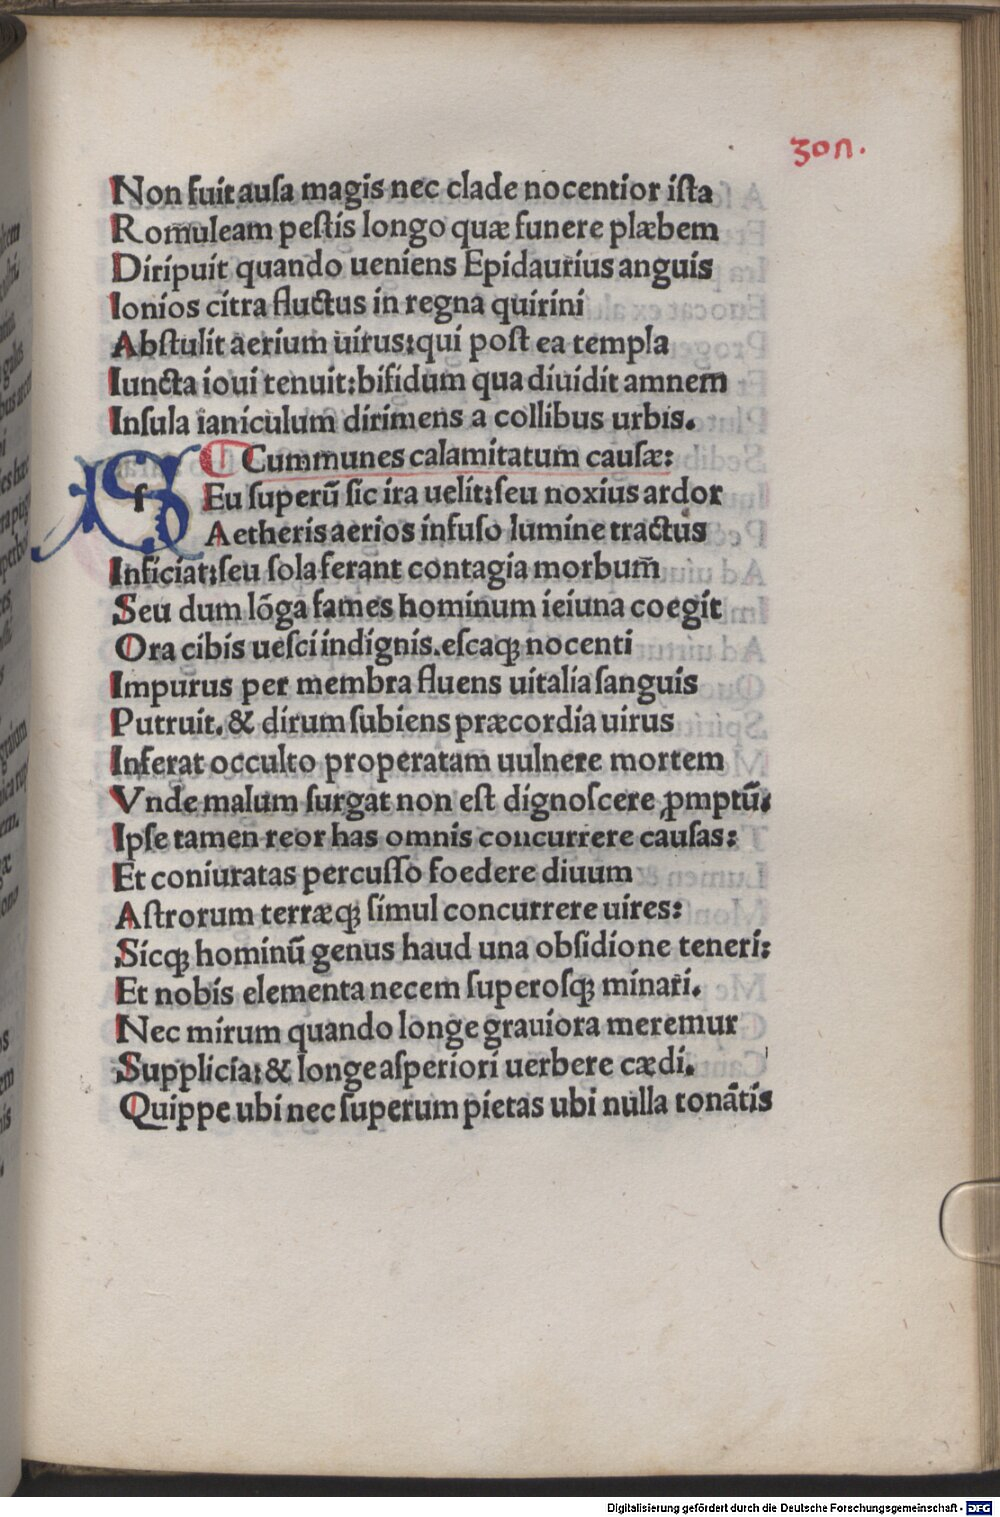 30n.
Non fuit ausa magis nec clade nocentior ista
Romuleam pestis longo quæ funere plæbem
Diripuit quando ueniens Epidaurius anguis
Ionios citra fluctus in regna quirini
Abstulit aerium uirus: qui post ea templa
Iuncta ioui tenuit: bifidum qua diuidit amnem
Insula ianiculum dirimens a collibus urbis.
Cummunes calamitatum causæ:
f Eu superū sic ira uelit: seu noxius ardor
Aetheris aerios infuso lumine tractus
Inficiat: seu sola ferant contagia morbum̄
Seu dum lōga fames hominum ieiuna coegit
Ora cibis uesci indignis. escaqꝫ nocenti
Impurus per membra fluens uitalia sanguis
Putruit. & dirum subiens præcordia uirus
Inferat occulto properatam uulnere mortem
Vnde malum surgat non est dignoscere ꝓmptū.
Ipse tamen reor has omnis concurrere causas:
Et coniuratas percusso foedere diuum
Astrorum terræqꝫ simul concurrere uires:
Sicqꝫ hominū genus haud una obsidione teneri:
Et nobis elementa necem superosqꝫ minari.
Nec mirum quando longe grauiora meremur
Supplicia: & longe asperiori uerbere cædi.
Quippe ubi nec superum pietas ubi nulla tonātis
Digitalisierung gefördert durch die Deutsche Forschungsgemeinschaft - DFG